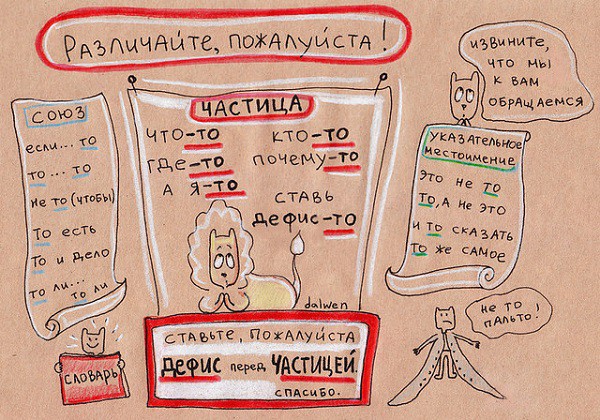 Различайте, пожалуйста!
СОЮЗ
если... то
то ... то
не то (чтобы)
то есть
то и дело
то ли...
то ли
СЛОВАРЬ
ЧАСТИЦА
что-то кто-то
где-то почему-то
а я-то
ставь
дефис-то
dalwen
Ставьте, пожалуйста
дефис перед частицей.
спасибо.
извините,
что мы
к вам
обращаемся
указательное
местоимение
это не то
то, а не это
и то сказать
то же самое
не то
пальто!